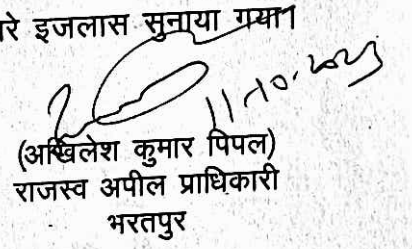 रे इजलास सुनाया गया।
11-10-2023
(अखिलेश कुमार पिपल)
राजस्व अपील प्राधिकारी
भरतपुर